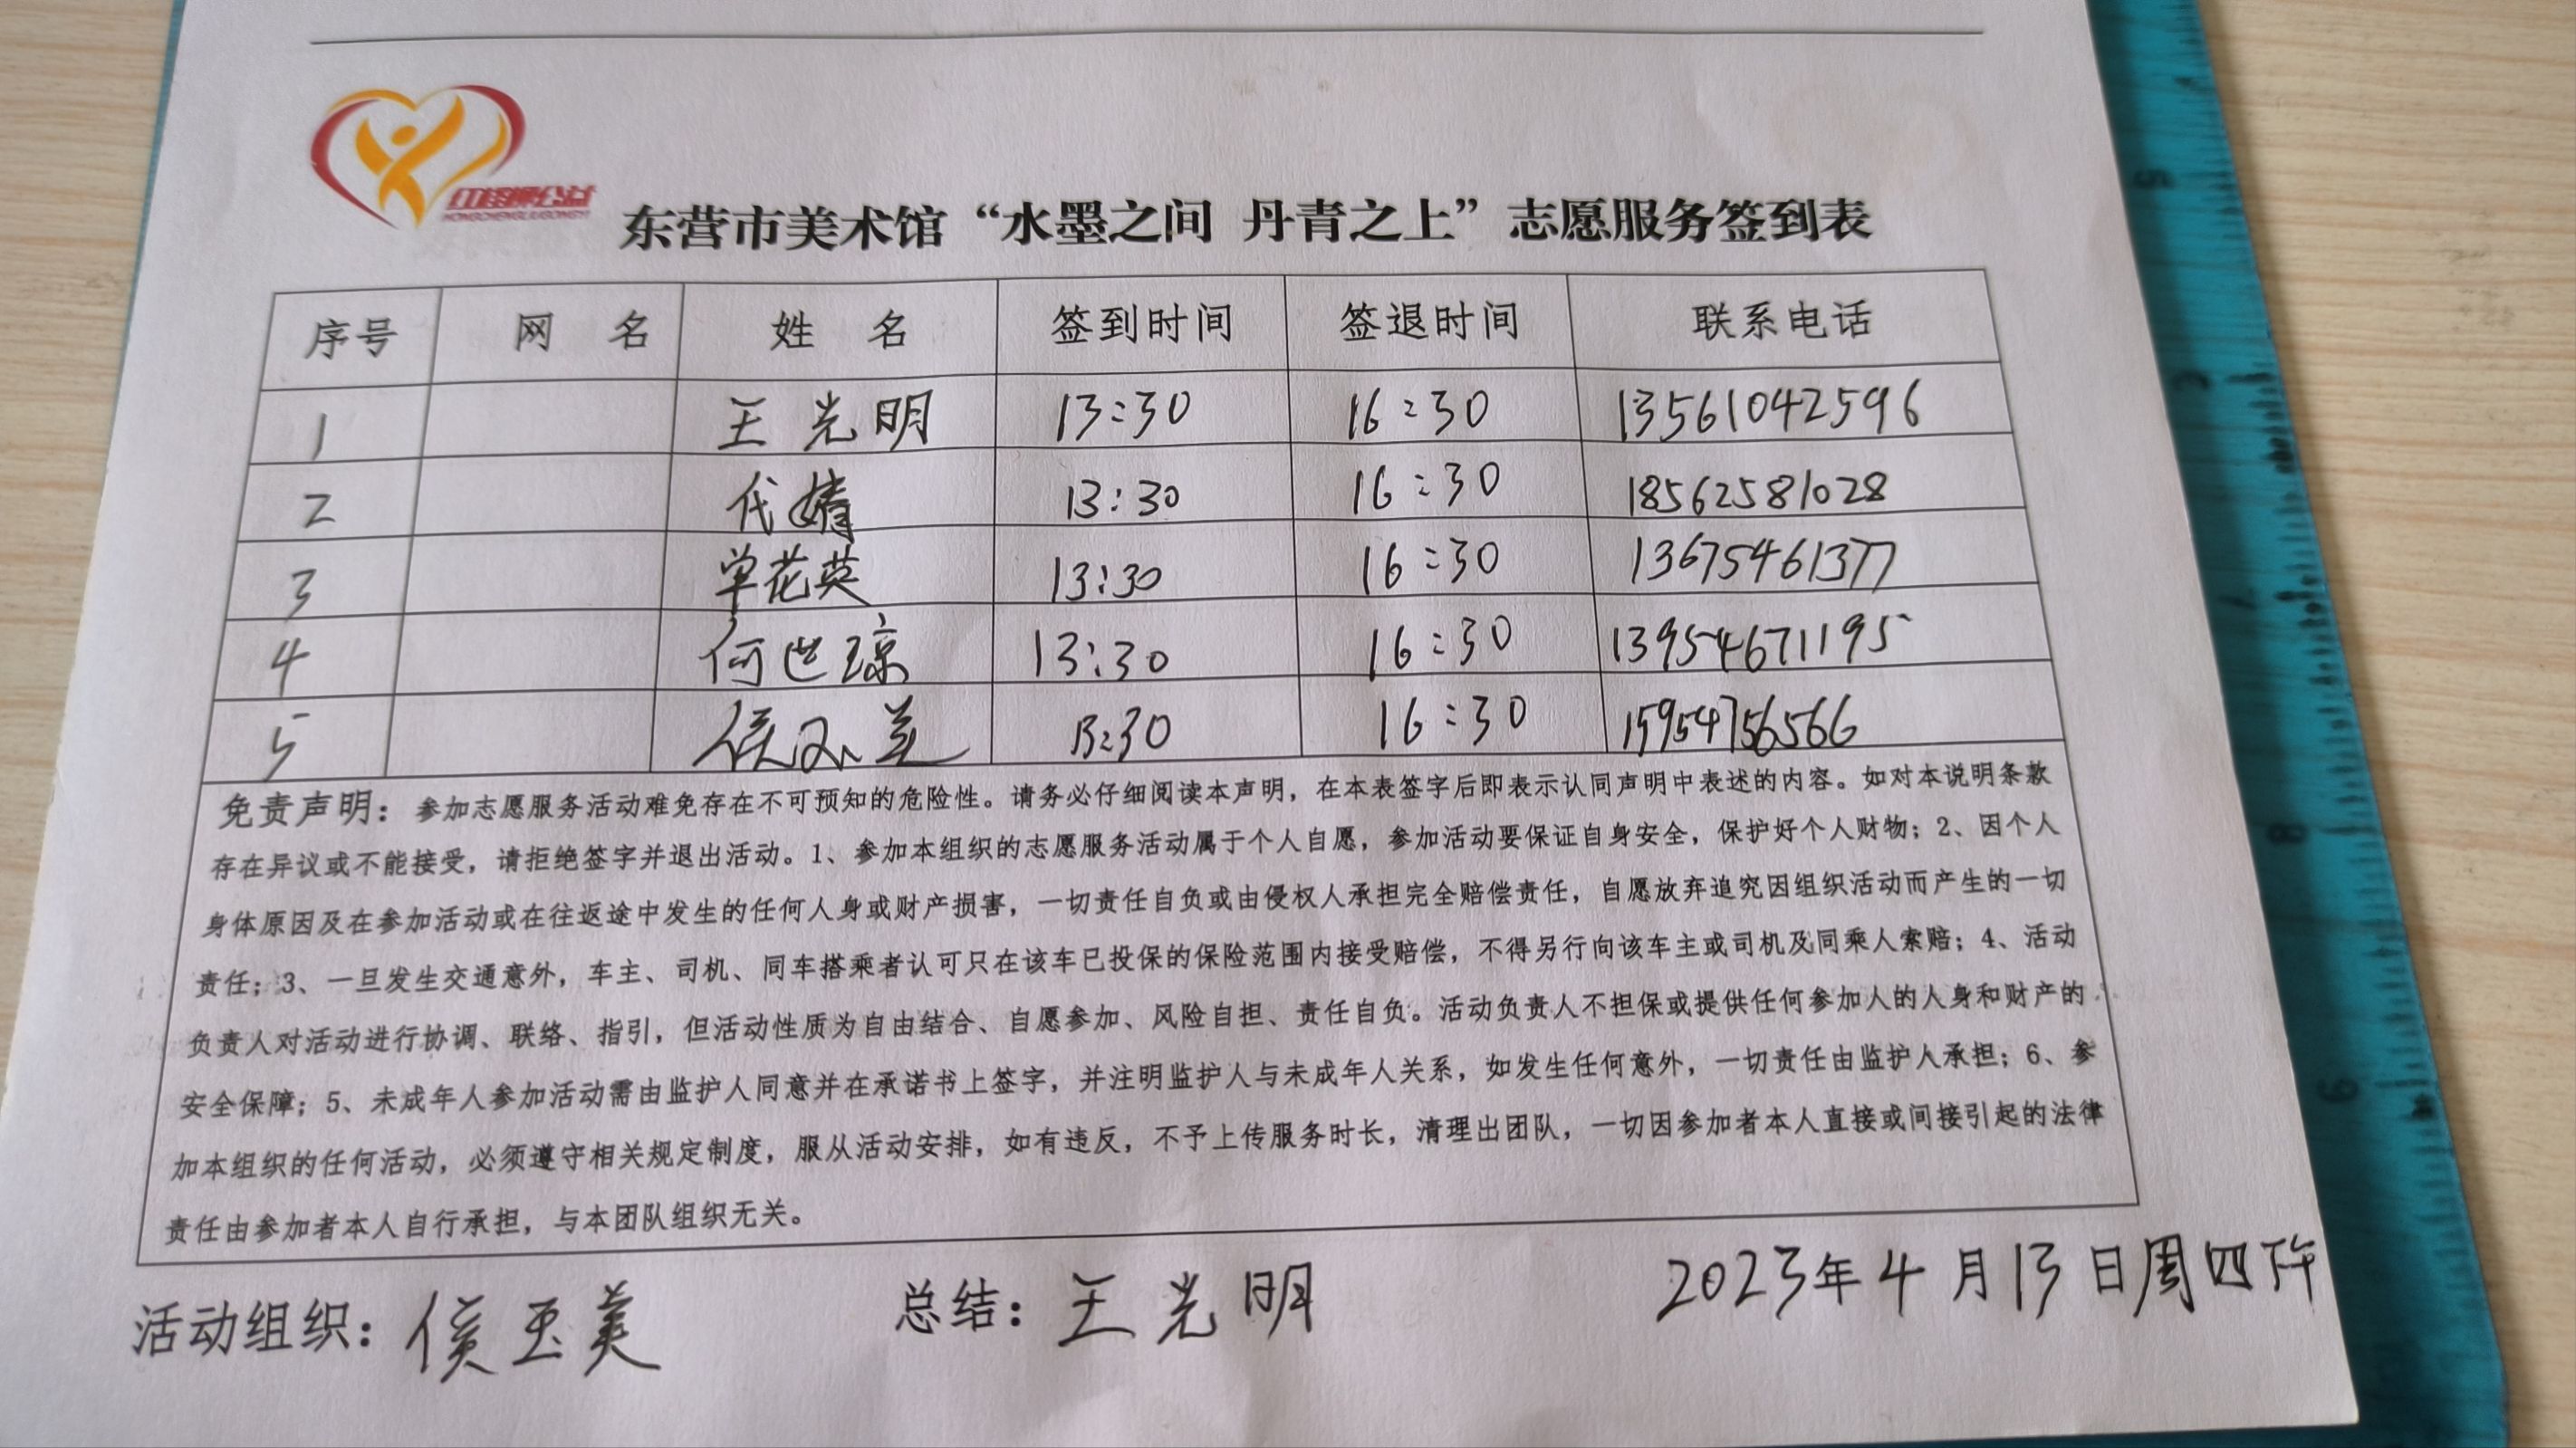 红柽柳公益
HONGCHENGLIUGONGYI
东营市美术馆“水墨之间 丹青之上”志愿服务签到表
序号 网 名 姓 名 签到时间 签退时间 联系电话
1 王光明 13:30 16:30 13561042596
2 代婧 13:30 16:30 18562581028
3 单花英 13:30 16:30 13675461377
4 何世琼 13:30 16:30 13954671195
5 侯玉美 13:30 16:30 15954756566
免责声明：参加志愿服务活动难免存在不可预知的危险性。请务必仔细阅读本声明，在本表签字后即表示认同声明中表述的内容。如对本说明条款
存在异议或不能接受，请拒绝签字并退出活动。1、参加本组织的志愿服务活动属于个人自愿，参加活动要保证自身安全，保护好个人财物；2、因个人
身体原因及在参加活动或在往返途中发生的任何人身或财产损害，一切责任自负或由侵权人承担完全赔偿责任，自愿放弃追究因组织活动而产生的一切
责任；3、一旦发生交通意外，车主、司机、同车搭乘者认可只在该车已投保的保险范围内接受赔偿，不得另行向该车主或司机及同乘人索赔；4、活动
负责人对活动进行协调、联络、指引，但活动性质为自由结合、自愿参加、风险自担、责任自负。活动负责人不担保或提供任何参加人的人身和财产的
安全保障；5、未成年人参加活动需由监护人同意并在承诺书上签字，并注明监护人与未成年人关系，如发生任何意外，一切责任由监护人承担；6、参
加本组织的任何活动，必须遵守相关规定制度，服从活动安排，如有违反，不予上传服务时长，清理出团队，一切因参加者本人直接或间接引起的法律
责任由参加者本人自行承担，与本团队组织无关。
活动组织：侯玉美 总结：王光明 2023年4月13日周四下午